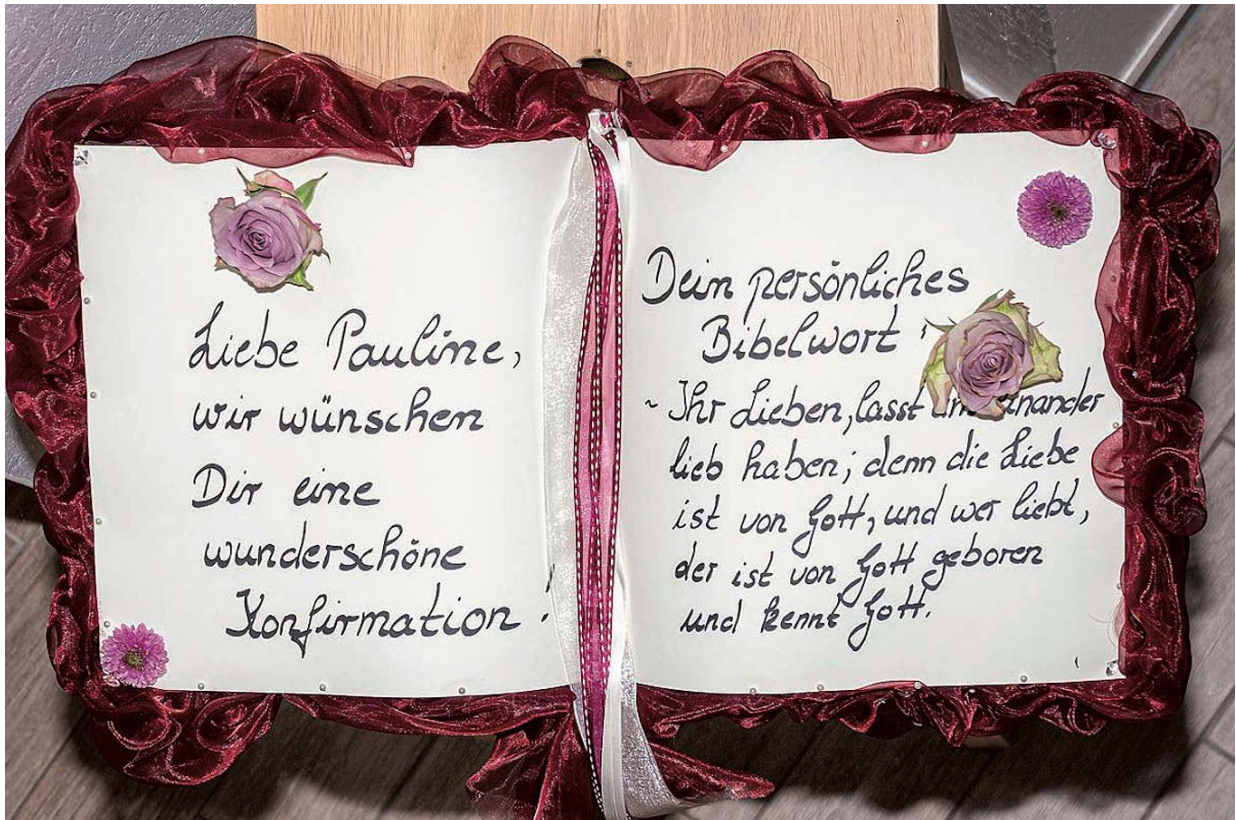 Liebe Pauline,
wir wünschen
Dir eine
wunderschöne
Konfirmation!
Dein persönliches
Bibelwort:
~ Ihr Lieben, lasst einander
lieb haben; denn die Liebe
ist von Gott, und wer liebt,
der ist von Gott geboren
und kennt Gott.